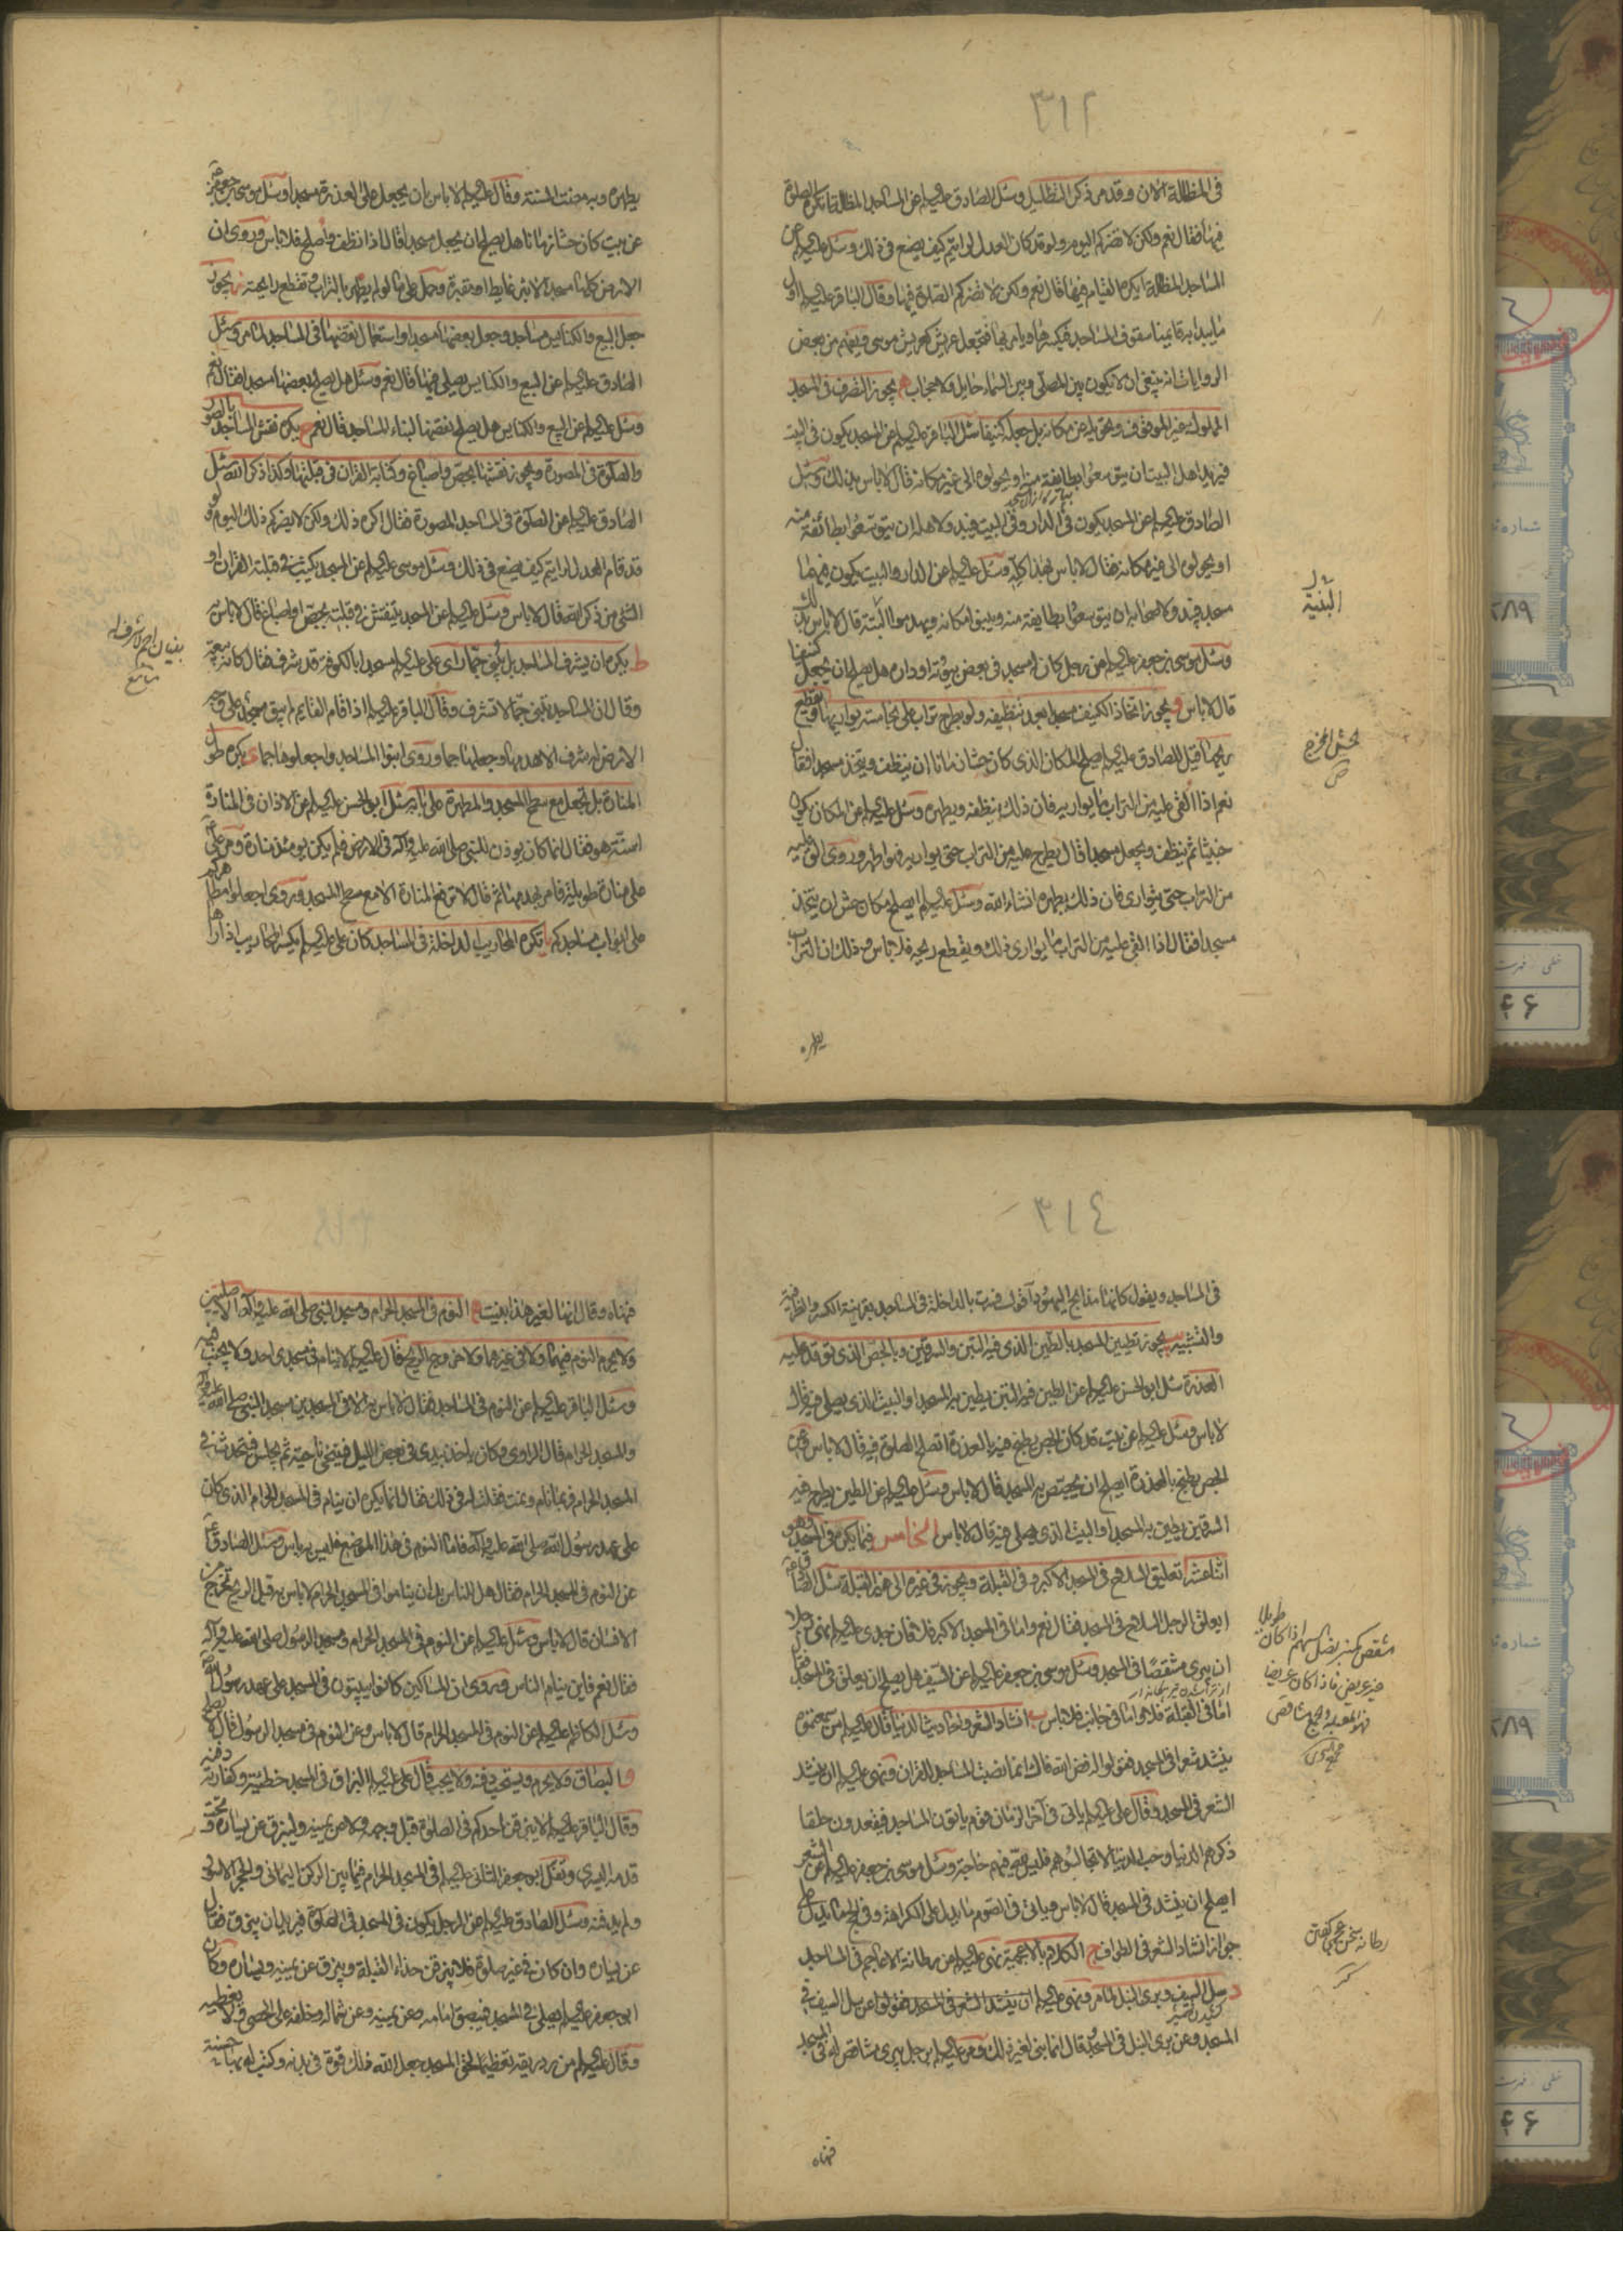 ٣١٢
فى المظللة الان وقد مر ذكر التظليل وسئل الصادق عليه السلم عن المساجد المظللة ايكره الصلوة
فيها فقال نعم ولكن لا تضركم اليوم ولو قد كان العدل لرايتم كيف يصنع فى ذلك وسئل عليه السلم عن
المساجد المظللة ايكره القيام فيها قال نعم ولكن لا تضركم الصلوة فيها وقال الباقر عليه السلم اول
ما يبدأ به قايمنا سقوف المساجد فيكسرها ويامر بها فتجعل عريش كعريش موسى ويفهم من بعض
الروايات انه ينبغى ان لا يكون بين المصلى وبين السماء حايل ولا حجاب ه يجوز التصرف فى المسجد
المملوك غير الموقوف وتحويله عن مكانه بل جعله كنيفا سئل الباقر عليه السلم عن المسجد يكون فى البيت
فيريد اهل البيت ان يتوسعوا بطايفة منه او يحولوه الى غير مكانه قال لا باس بذلك وسئل
الصادق عليه السلم عن المسجد يكون فى الدار وفى البيت فيبدو لاهله ان يتوسعوا بطائفة منه
او يحولوه الى غير مكانه فقال لا باس بهذا كله وسئل عليه السلم عن الدار والبيت يكون فيهما
مسجد فيبدو لاصحابه ان يتوسعوا بطايفة منه ويبنوا مكانه ويهدموا البنية قال لا باس بذلك
وسئل موسى بن جعفر عليه السلم عن رجل كان له مسجد فى بعض بيوته او داره هل يصلح ان يجعل كنيفا
قال لا باس و يجوز اتخاذ الكنيف مسجدا بعد تنظيفه ولو بطرح تراب على نجاسته يواريها ويقطع
ريحها قيل للصادق عليه السلم ايصلح المكان الذى كان حشا زمانا ان ينظف ويتخذ مسجدا فقال
نعم اذا القى عليه من التراب ما يواريه فان ذلك ينظفه ويطهره وسئل عليه السلم عن المكان يكون
خبيثا ثم ينظف ويجعل مسجدا قال يطرح عليه من التراب حتى يواريه فهو اطهر وروى الق عليه
من التراب حتى يتوارى فان ذلك يطهره انشاء الله وسئل عليه السلم ايصلح مكان حش ان يتخذ
مسجدا فقال اذا القى عليه من التراب ما يوارى ذلك ويقطع ريحه فلا باس وذلك ان التراب
يطهره
البنية
الحش المخرج
ص
يطهره وبه مضت السنة وقال عليه السلم لا باس بان يجعل على العذرة مسجدا وسئل موسى بن جعفر
عن بيت كان حشا زمانا هل يصلح ان يجعل مسجدا قال اذا نظف واصلح فلا باس وروى ان
الارض كلها مسجد الا بئر غايط او مقبرة وحمل على ما لو لم يطهر بالتراب وتنقطع رايحته ز يجوز
جعل البيع والكنايس مساجد وجعل بعضها مسجدا واستعمال نقضها فى المساجد لما مر وسئل
الصادق عليه السلم عن البيع والكنايس يصلى فيها قال نعم وسئل هل يصلح بعضها مسجدا فقال نعم
وسئل عليه السلم عن البيع والكنايس هل يصلح نقضها لبناء المساجد قال نعم ح يكره نقش المساجد بالصور
والصلوة فى المصورة ويجوز نقشها بجص واصباغ وكتابة القران فى قبلتها وكذا ذكر الله سئل
الصادق عليه السلم عن الصلوة فى المساجد المصورة فقال اكره ذلك ولكن لا يضركم ذلك اليوم ولو
قد قام العدل لرايتم كيف يصنع فى ذلك وسئل موسى عليه السلم عن المسجد يكتب فى قبلته القران او
الشئ من ذكر الله قال لا باس وسئل عليه السلم عن المسجد ينقش فى قبلته بجص او اصباغ قال لا باس به
ط يكره ان يشرف المساجد بل يبنى جما راى على عليه السلم مسجدا بالكوفة قد شرف فقال كانه بيعة
وقال ان المساجد تبنى جما لا تشرف وقال الباقر عليه السلم اذا قام القايم لم يبق مسجد على وجه
الارض له شرف الا هدمها وجعلها جما وروى ابنوا المساجد واجعلوها جما ى يكره طول
المنارة بل تجعل مع سطح المسجد والمطهرة على بابه سئل ابو الحسن عليه السلم عن الاذان فى المنارة
اسنة هو فقال انما كان يوذن للنبى صلى الله عليه وآله فى الارض فلم يكن يومئذ منارة ومر على
على منارة طويلة فامر بهدمها ثم قال لا ترفع المنارة الا مع سطح المسجد وروى اجعلوا مطاهركم
على ابواب مساجدكم يا تكره المحاريب الداخلة فى المساجد كان على عليه السلم يكسر المحاريب اذا راها
٣١٤
فى المساجد ويقول كانها مذابح اليهود اقول فسرت بالداخلة فى المساجد بقرينة الكسر والظرفية
والتشبيه يب يجوز تطيين المسجد بالطين الذى فيه التبن والسرقين وبالجص الذى توقد عليه
العذرة سئل ابو الحسن عليه السلم عن الطين فيه التبن يطين به المسجد او البيت الذى يصلى فيه قال
لا باس وسئل عليه السلم عن بيت قد كان الجص يطبخ فيه بالعذرة اتصلح الصلوة فيه قال لا باس وعن
الجص يطبخ بالعذرة ايصلح ان يجصص به المسجد قال لا باس وسئل عليه السلم عن الطين يطرح فيه
السرقين يطين به المسجد او البيت الذى يصلى فيه قال لا باس الخامس فيما يكره فى المسجد وهو
اثنا عشر ا تعليق السلاح فى المسجد الاكبر وفى القبلة ويجوز فى غيره الى غير القبلة سئل الصادق
ايعلق الرجل السلاح فى المسجد فقال نعم واما فى المسجد الاكبر فلا فان جدى عليه السلم نهى رجلا
ان يبرى مشقصا فى المسجد وسئل موسى بن جعفر عليه السلم عن السيف هل يصلح ان يعلق فى المسجد فقال
اما فى القبلة فلا واما فى جانب فلا باس ب انشاد الشعر واحاديث الدنيا قال عليه السلم من سمعتموه
ينشد شعرا فى المسجد فقولوا له فض الله فاك انما نصبت المساجد للقران ونهى عليه السلم ان ينشد
الشعر فى المسجد وقال على عليه السلم ياتى فى آخر الزمان قوم ياتون المساجد فيقعدون حلقا
ذكرهم الدنيا وحب الدنيا لا تجالسوهم فليس لله فيهم حاجة وسئل موسى بن جعفر عليه السلم عن الشعر
ايصلح ان ينشد فى المسجد قال لا باس وياتى فى الصوم ما يدل على الكراهة وفى الحج ما يدل على
جواز انشاد الشعر فى الطواف ج الكلام بالاعجمية نهى عليه السلم عن رطانة الاعاجم فى المساجد
د سل السيف وبرى النبل لما مر ونهى عليه السلم ان ينشد الشعر فى المسجد وعن سل السيف فى
المسجد وعن برى النبل فى المسجد قال انما بنى لغير ذلك ومر عليه السلم برجل يبرى مشاقص له فى المسجد
فنهاه
رطانة سخن عجمى كفتن
كنز
فنهاه وقال انها لغير هذا بنيت ه النوم فى المسجد الحرام ومسجد النبى صلى الله عليه وآله الاصليين
ولا يحرم النوم فيهما ولا فى غيرهما ولا خروج الريح قال عليه السلم لا ينام فى مسجدى احد ولا يجنب فيه
وسئل الباقر عليه السلم عن النوم فى المساجد فقال لا باس به الا فى المسجدين مسجد النبى صلى الله عليه وآله
والمسجد الحرام قال الراوى وكان ياخذ بيدى فى بعض الليل فيتنحى ناحية ثم يجلس فيتحدث فى
المسجد الحرام فربما نام ونمت فقلت له فى ذلك فقال انما يكره ان ينام فى المسجد الحرام الذى كان
على عهد رسول الله صلى الله عليه وآله فاما النوم فى هذا الموضع فليس به باس وسئل الصادق
عن النوم فى المسجد الحرام فقال هل للناس بد ان يناموا فى المسجد الحرام لا باس به قيل الريح تخرج من
الانسان قال لا باس وسئل عليه السلم عن النوم فى المسجد الحرام ومسجد الرسول صلى الله عليه وآله
فقال نعم فاين ينام الناس وروى ان المساكين كانوا يبيتون فى المسجد على عهد رسول الله
وسئل الكاظم عليه السلم عن النوم فى المسجد الحرام قال لا باس وعن النوم فى مسجد الرسول قال لا يصلح
و البصاق ولا يحرم ويستحب دفنه ولا يجب قال على عليه السلم البزاق فى المسجد خطيئة وكفارته دفنه
وقال الباقر عليه السلم لا يبزقن احدكم فى الصلوة قبل وجهه ولا عن يمينه وليبزق عن يساره وتحت
قدمه اليسرى وتفل ابو جعفر الثانى عليه السلم فى المسجد الحرام فيما بين الركن اليمانى والحجر الاسود
ولم يدفنه وسئل الصادق عليه السلم عن الرجل يكون فى المسجد فى الصلوة فيريد ان يبزق فقال
عن يساره وان كان فى غير صلوة فلا يبزقن حذاء القبلة ويبزق عن يمينه ويساره وكان
ابو جعفر عليه السلم يصلى فى المسجد فيبصق امامه وعن يمينه وعن شماله وخلفه على الحصى ولا يغطيه
وقال عليه السلم من رد ريقه تعظيما لحق المسجد جعل الله ذلك قوة فى بدنه وكتب له بها حسنة